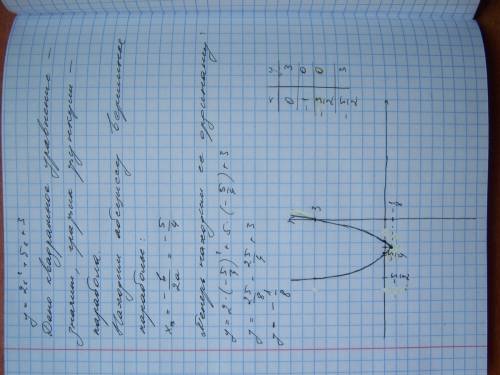 y = 2x² + 5x + 3
Дано квадратное уравнение –
значит, график функции –
парабола.
Находим абсциссу вершины
параболы:
xₙ = -b/2a = -5/4
Теперь находим ее ординату:
y = 2·(-5/4)² + 5·(-5/4) + 3
y = 25/8 - 25/4 + 3
y = -1/8
x | 0 | -1 | -3/2 | -5/2
y | 3 | 0 | 0 | 3
3
-5/2 -5/4 -1/8